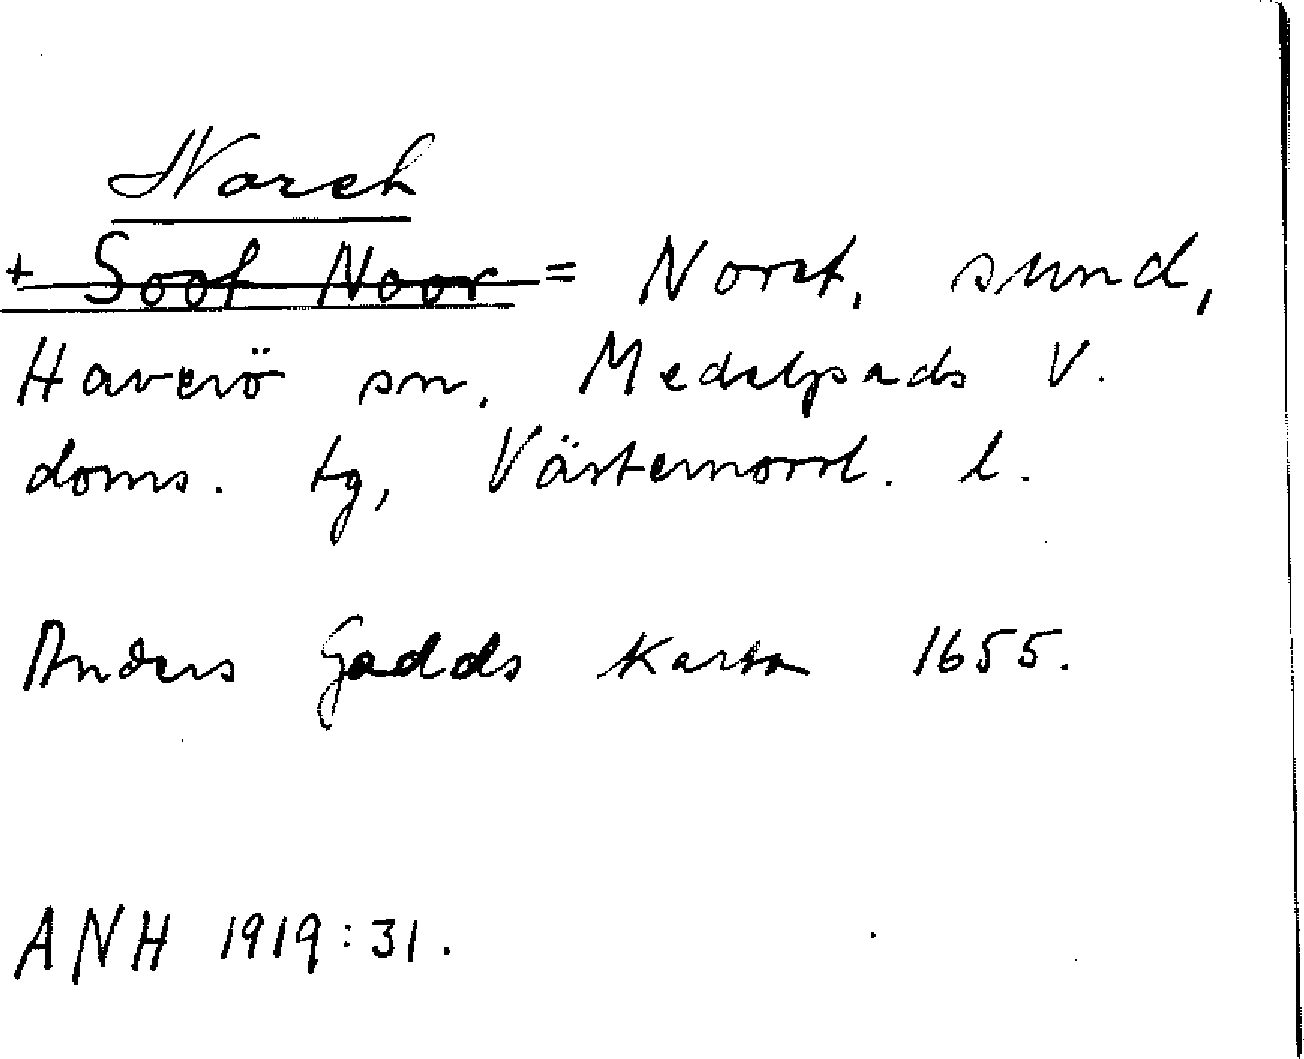 Noret
+ Soof Noor = Noret, sund,
Haverö sn, Medelpads V.
doms. tg, Västernorrl. l.
Anders Gadds karta 1655.
ANH 1919:31.